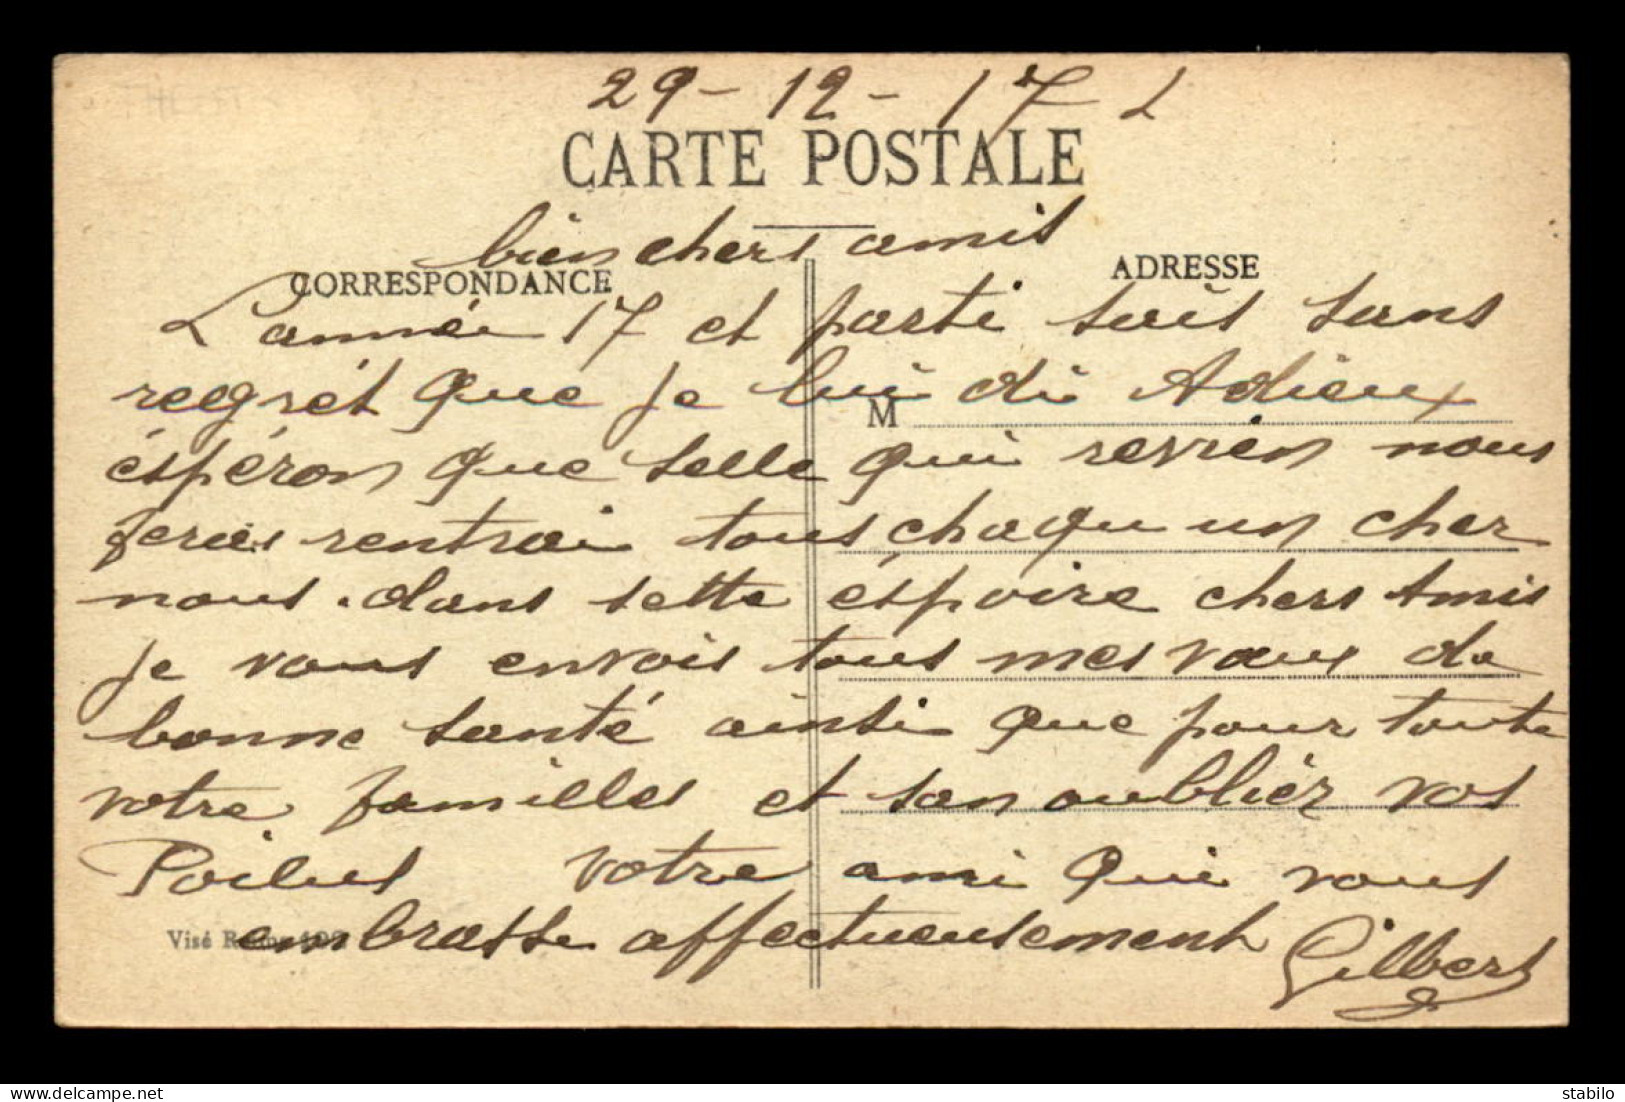 29-12-17
CARTE POSTALE
bien chers amis
CORRESPONDANCE
ADRESSE
L'année 17 et parti sais sans
regrét que je lui di Adieux
M
éspéron que selle qui revien nous
feras rentrai tous chaqu un cher
nous. dans sette éspoire chers Amis
je vous envois tous mes vœux de
bonne santé ainsi que pour toute
votre familles et san oubliér vos
Poilus votre ami qui vous
Visé
embrasse affectueusement Gilbert
delcampe.net
stabilo